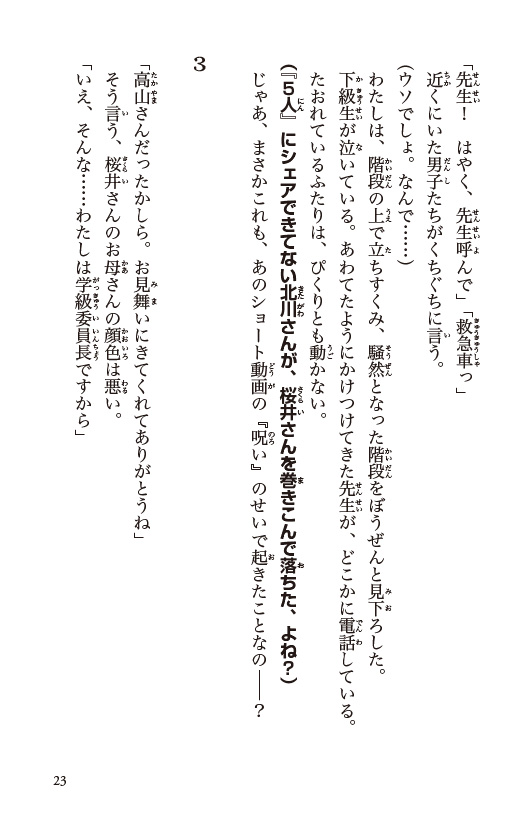 「先生！　はやく、先生呼んで」「救急車っ」
近くにいた男子たちがくちぐちに言う。
（ウソでしょ。なんで……）
わたしは、階段の上で立ちすくみ、騒然となった階段をぼうぜんと見下ろした。
下級生が泣いている。あわてたようにかけつけてきた先生が、どこかに電話している。
たおれているふたりは、ぴくりとも動かない。
（『５人』にシェアできてない北川さんが、桜井さんを巻きこんで落ちた、よね？）
じゃあ、まさかこれも、あのショート動画の『呪い』のせいで起きたことなの――？
3
「高山さんだったかしら。お見舞いにきてくれてありがとうね」
そう言う、桜井さんのお母さんの顔色は悪い。
「いえ、そんな……わたしは学級委員長ですから」
23